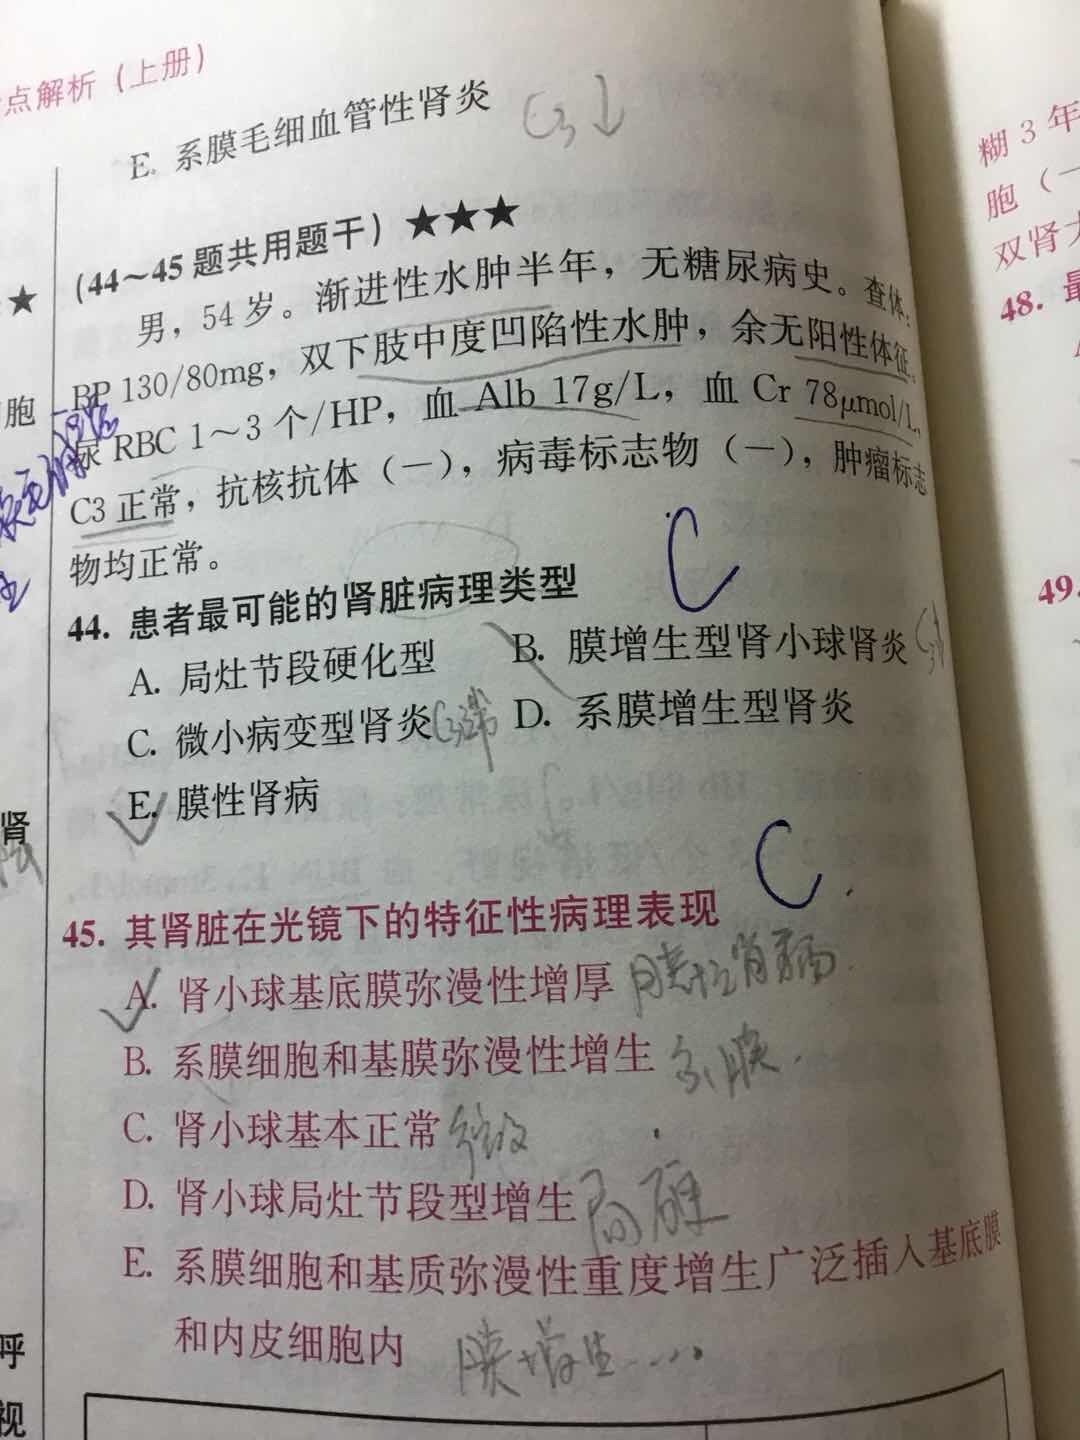 点解析（上册）
E. 系膜毛细血管性肾炎 C3↓
（44～45题共用题干）★★★
男，54岁。渐进性水肿半年，无糖尿病史。查体：
BP 130/80mg，双下肢中度凹陷性水肿，余无阳性体征。
尿 RBC 1～3个/HP，血 Alb 17g/L，血 Cr 78μmol/L，
C3正常，抗核抗体（－），病毒标志物（－），肿瘤标志
物均正常。
C
44. 患者最可能的肾脏病理类型
A. 局灶节段硬化型 B. 膜增生型肾小球肾炎 C3↓
C. 微小病变型肾炎 C3正常 D. 系膜增生型肾炎
E. 膜性肾病
C
45. 其肾脏在光镜下的特征性病理表现
A. 肾小球基底膜弥漫性增厚 膜性肾病
B. 系膜细胞和基膜弥漫性增生 系膜.
C. 肾小球基本正常
D. 肾小球局灶节段型增生 局
E. 系膜细胞和基质弥漫性重度增生广泛插入基底膜
和内皮细胞内 膜增生....
★
胞
肾
呼
视
糊 3 年
胞（一
双肾
48.
49.